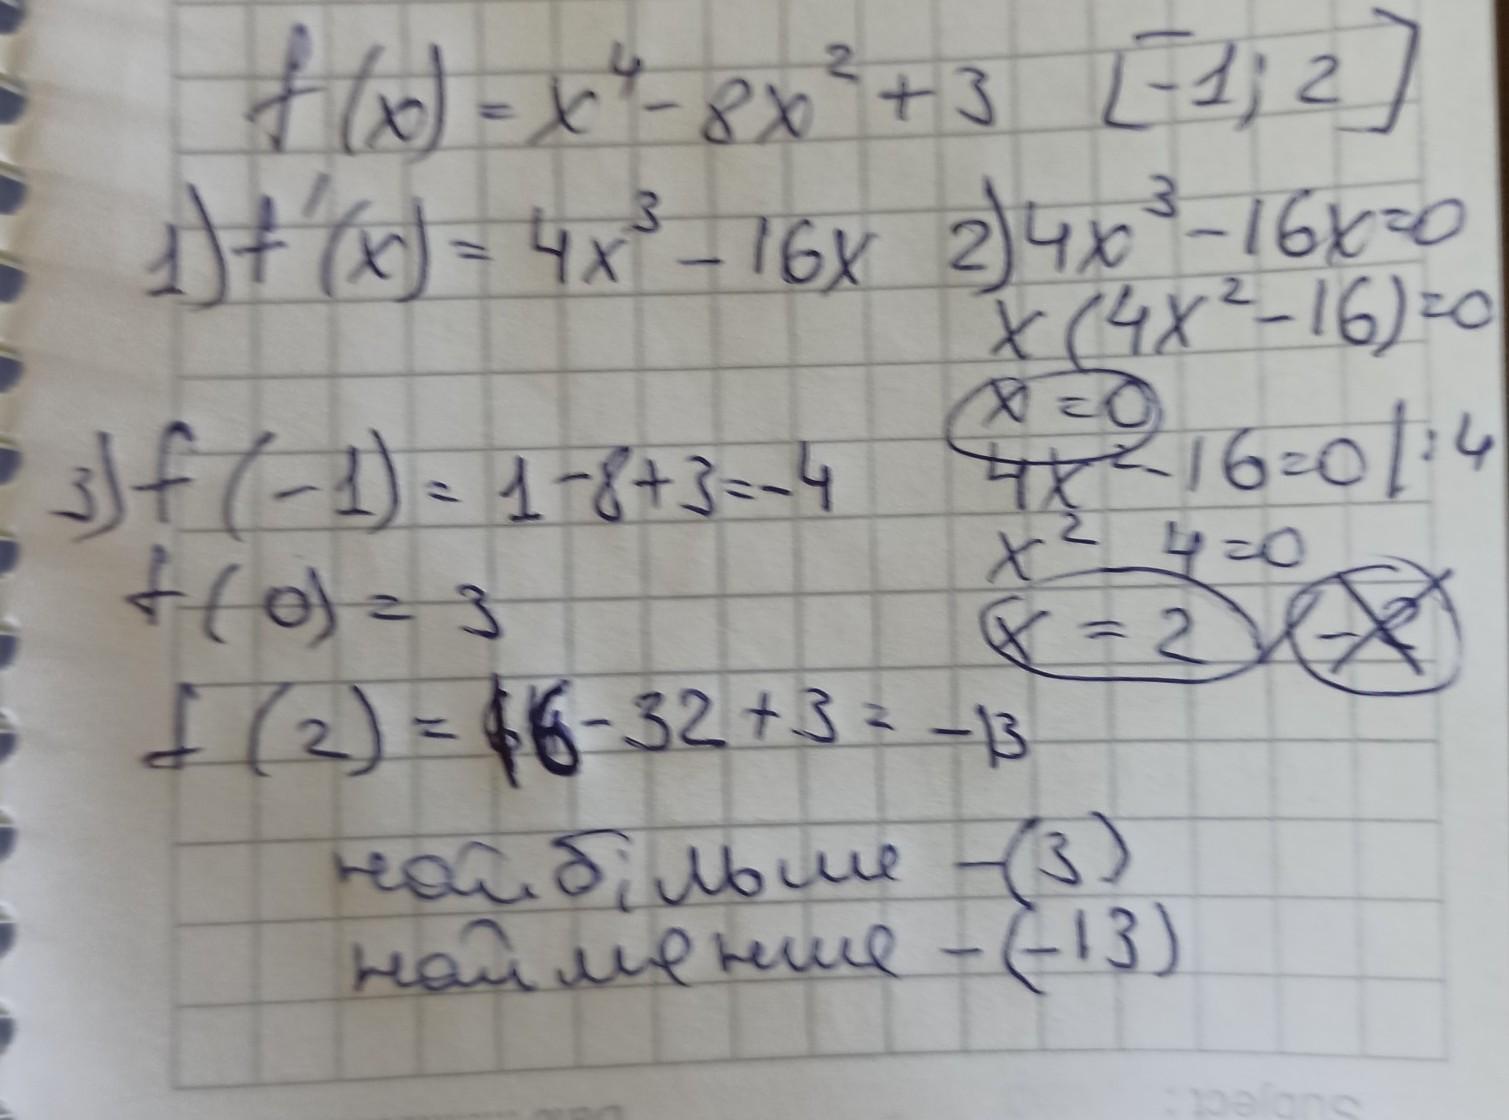 f(x) = x⁴ - 8x² + 3 [-1; 2]
1) f'(x) = 4x³ - 16x
2) 4x³ - 16x = 0
x(4x² - 16) = 0
x = 0
4x² - 16 = 0 | : 4
x² 4 = 0
x = 2 -2
3) f(-1) = 1 - 8 + 3 = -4
f(0) = 3
f(2) = 16 - 32 + 3 = -13
найбільше - (3)
найменше - (-13)
Subject:
Date